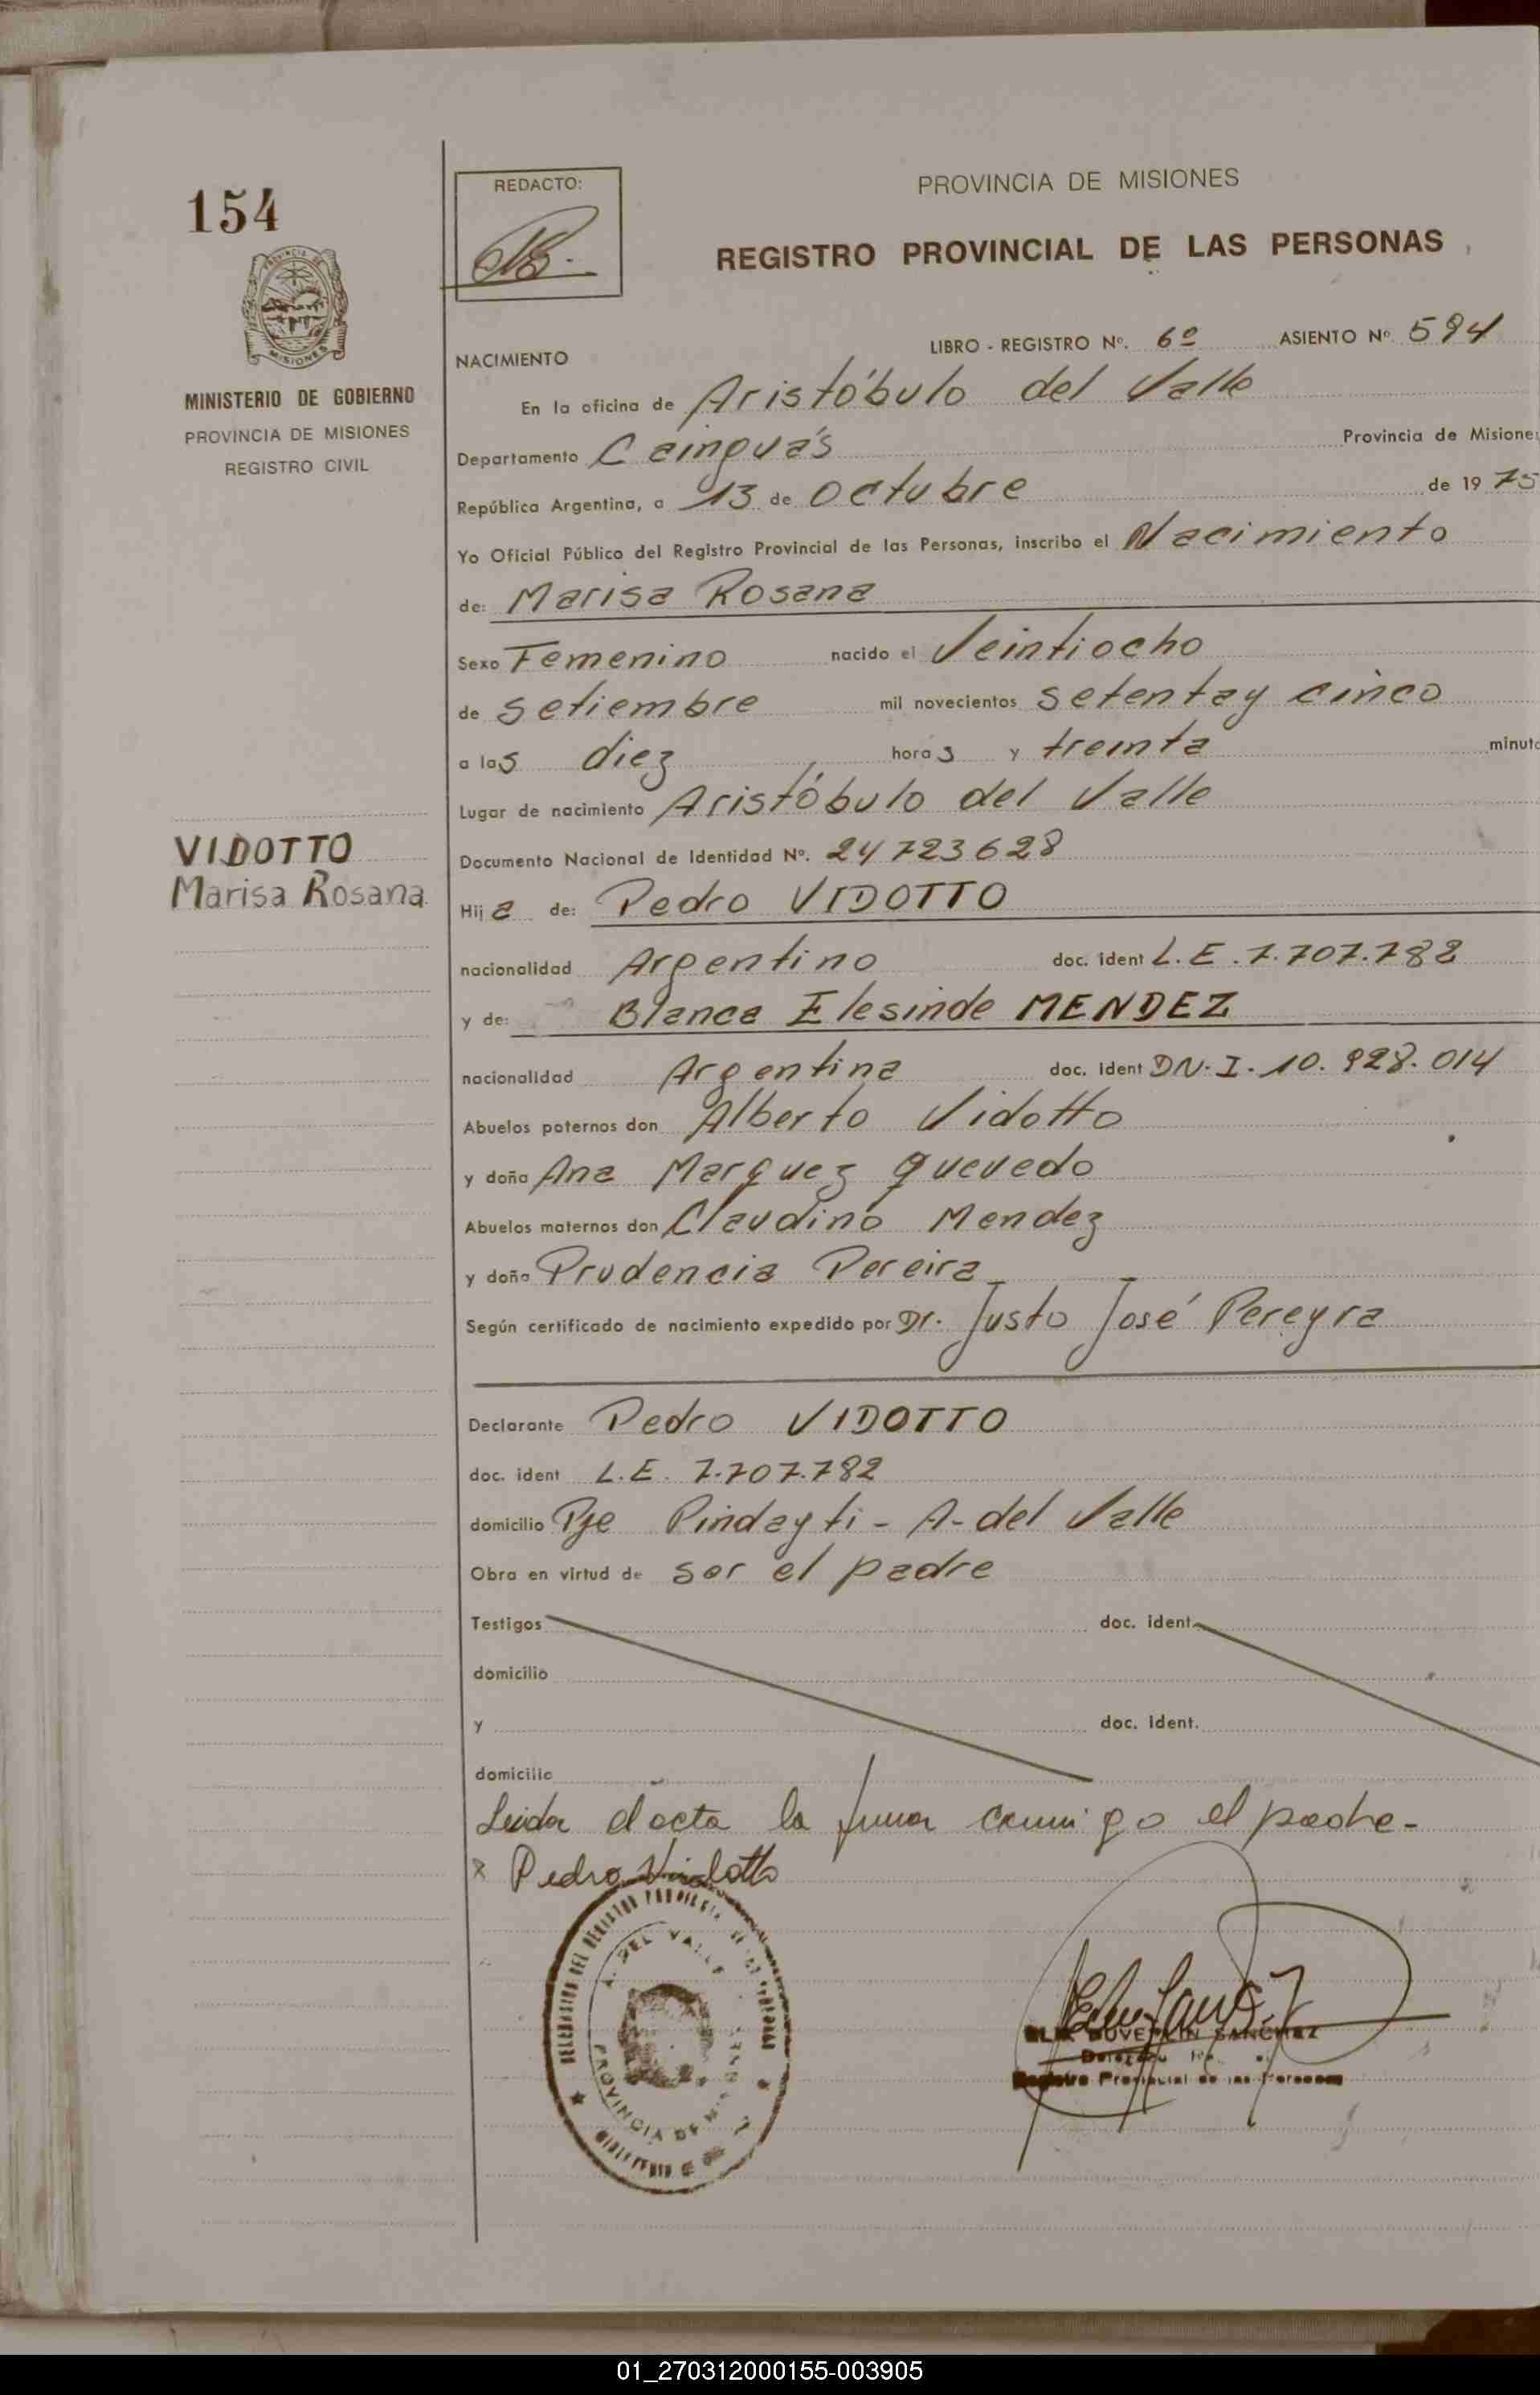 154
PROVINCIA DE
MISIONES
MINISTERIO DE GOBIERNO
PROVINCIA DE MISIONES
REGISTRO CIVIL
VIDOTTO
Marisa Rosana
REDACTO:
PROVINCIA DE MISIONES
REGISTRO PROVINCIAL DE LAS PERSONAS
NACIMIENTO LIBRO - REGISTRO Nº. 6º ASIENTO Nº 594
En la oficina de Aristóbulo del Valle
Departamento Cainguás Provincia de Misiones
República Argentina, a 13 de Octubre de 1975
Yo Oficial Público del Registro Provincial de las Personas, inscribo el Nacimiento
de: Marisa Rosana
Sexo Femenino nacido el Veintiocho
de Setiembre mil novecientos setenta y cinco
a las diez horas y treinta minuto
Lugar de nacimiento Aristóbulo del Valle
Documento Nacional de Identidad Nº. 24723628
Hija de: Pedro VIDOTTO
nacionalidad Argentino doc. ident L.E. 7.707.782
y de: Blanca Elesinde MENDEZ
nacionalidad Argentina doc. ident DN.I. 10.928.014
Abuelos paternos don Alberto Vidotto
y doña Ana Marquez quevedo
Abuelos maternos don Claudino Mendez
y doña Prudencia Pereira
Según certificado de nacimiento expedido por Dr. Justo José Pereyra
Declarante Pedro VIDOTTO
doc. ident L.E. 7.707.782
domicilio Pje Pindayti - A- del Valle
Obra en virtud de ser el padre
Testigos doc. ident.
domicilio
y doc. ident.
domicilio
Leida el acta la firma conmigo el padre.
x Pedro Vidotto
DELEGACION DEL REGISTRO PROVINCIAL
A. DEL VALLE
PROVINCIA DE MISIONES
SANCHEZ
Registro Provincial de las Personas
01_270312000155-003905